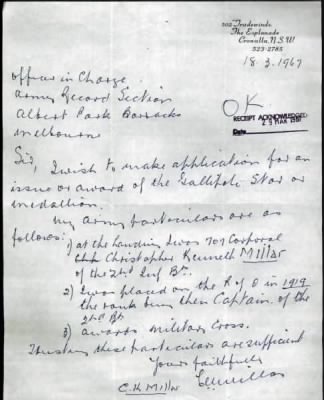 202 Tradewinds
The Esplanade
Cronulla, N.S.W
523-2785
18.3.1967
Officer in Charge
Army Record Section
Albert Park Barracks
Melbourne
OK
RECEIPT ACKNOWLEDGED
29 MAR 1967
Date
Sir, I wish to make application for an
issue or award of the Gallipoli Star or
medallion.
My Army particulars are as
follows:
1) at the Landing I was 707 Corporal
Christopher Kenneth Millar
of the 2nd Inf Bn.
2) I was placed on the R of O in 1919
the rank being then Captain of the
2nd Bn
3) awards Military Cross.
Trusting these particulars are sufficient
Yours faithfully
C.K Millar CKMillar